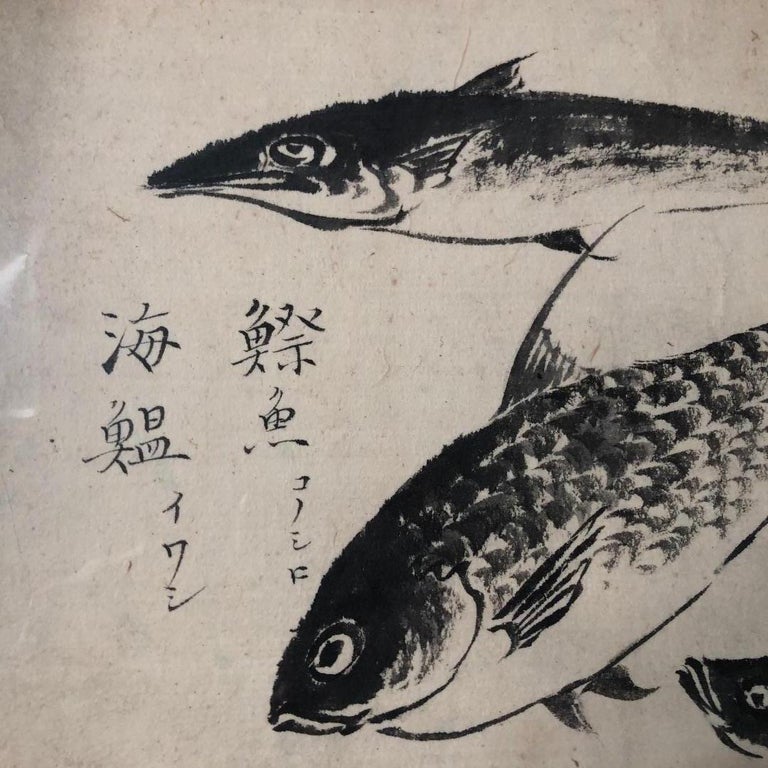 鰶魚コノシロ
海鰛イワシ